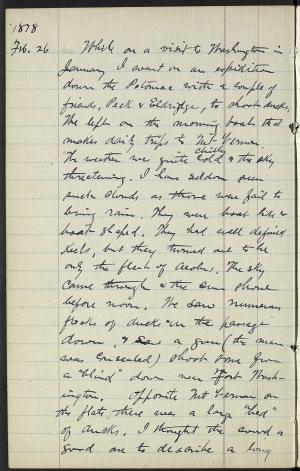 1878
Feb. 26 While on a visit to Washington in
January I went on an expedition
down the Potomac with a couple of
friends, Peck & Eldridge, to shoot ducks.
We left on the morning boat that
makes daily trips to Mt Vernon.
chilly
The weather was quite cold & the sky
threatening. I have seldom seen
such clouds as those were fail to
bring rain. They were boat like &
boat shaped. They had well defined
keels, but they turned out to be
only the fleet of Aeolus. The sky
came through & the sun shone
before noon. We saw numerous
flocks of ducks on the passage
down, & saw a gun (the man
was concealed) shoot some from
a "blind" down near Fort Wash-
ington. Opposite Mt Vernon on
the flats, there was a large "bed"
of ducks. I thought the word a
good one to describe a long